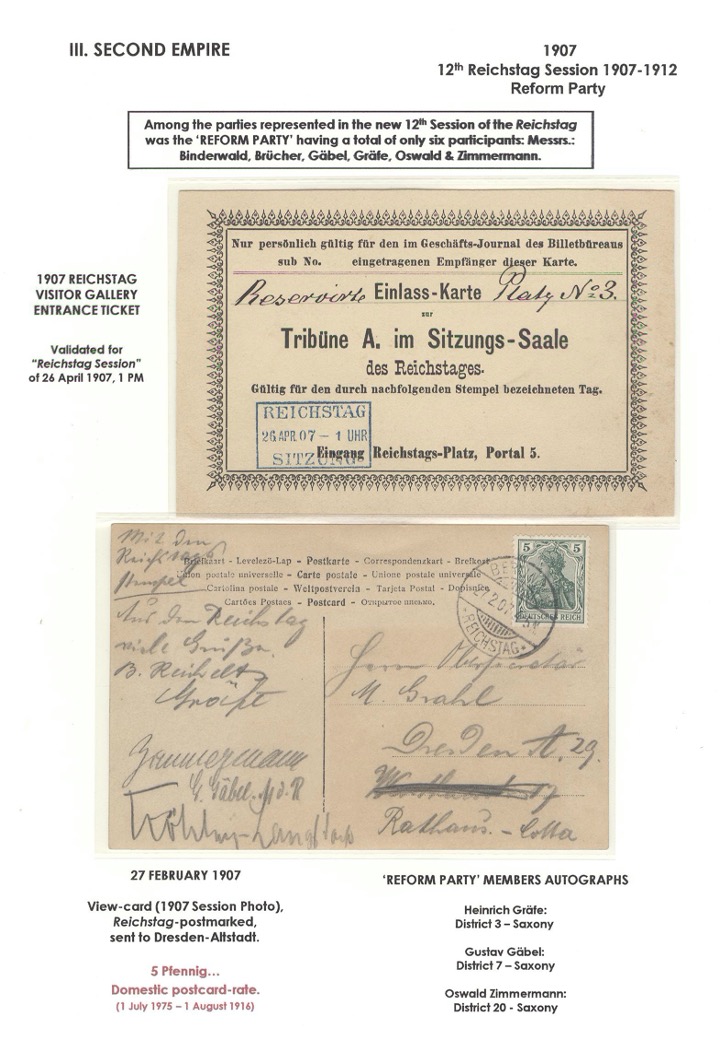 III. SECOND EMPIRE
1907
12th Reichstag Session 1907-1912
Reform Party
Among the parties represented in the new 12th Session of the Reichstag
was the 'REFORM PARTY' having a total of only six participants: Messrs.:
Binderwald, Brücher, Gäbel, Gräfe, Oswald & Zimmermann.
1907 REICHSTAG
VISITOR GALLERY
ENTRANCE TICKET
Validated for
"Reichstag Session"
of 26 April 1907, 1 PM
Nur persönlich gültig für den im Geschäfts-Journal des Billetbüreaus
sub No. eingetragenen Empfänger dieser Karte.
Reservirte Einlass-Karte Platz No 3.
zur
Tribüne A. im Sitzungs-Saale
des Reichstages.
Gültig für den durch nachfolgenden Stempel bezeichneten Tag.
REICHSTAG
26 APR. 07 – 1 UHR
SITZUNG
Eingang Reichstags-Platz, Portal 5.
Mit dem
Reichstags
Stempel
Briefkaart - Levelező-Lap - Postkarte - Correspondenzkart - Brefkort
Union postale universelle - Carte postale - Unione postale universale
Cartolina postale - Weltpostverein - Tarjeta Postal - Dopisnice
Cartões Postaes - Postcard - Открытое письмо.
5 5
DEUTSCHES REICH
BERLIN
27.2.07
REICHSTAG
Aus dem Reichstag
viele Grüße.
B. Reichelt
Gräfe
Zimmermann
G. Gäbel. M.d.R
Herrn Obersecretär
M. Grahl
Dresden A. 29.
17
Rathaus. - Cotta
27 FEBRUARY 1907
View-card (1907 Session Photo),
Reichstag-postmarked,
sent to Dresden-Altstadt.
5 Pfennig…
Domestic postcard-rate.
(1 July 1975 – 1 August 1916)
'REFORM PARTY' MEMBERS AUTOGRAPHS
Heinrich Gräfe:
District 3 – Saxony
Gustav Gäbel:
District 7 – Saxony
Oswald Zimmermann:
District 20 - Saxony